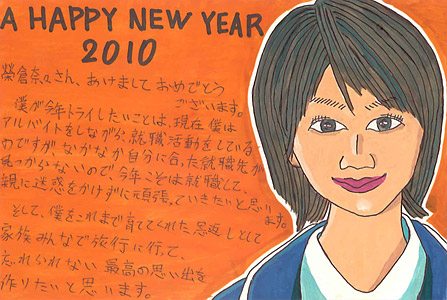 A HAPPY NEW YEAR
2010
榮倉奈々さん、あけまして おめでとう
ございます。
僕が今年トライしたいことは、現在 僕は
アルバイトをしながら就職活動をしている
のですがなかなか自分に合った就職先が
見つからないので、今年こそは就職して、
親に迷惑をかけずに頑張っていきたいと思い
ます。
そして、僕をこれまで育ててくれた恩返しとして
家族みんなで旅行に行って、
忘れられない 最高の思い出を
作りたいと思います。